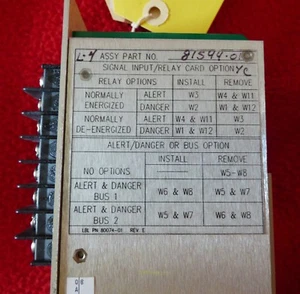 L-4 ASSY PART NO. 81594-01
SIGNAL INPUT/RELAY CARD OPTION
RELAY OPTIONS INSTALL REMOVE
NORMALLY ENERGIZED ALERT W3 W4 & W11
DANGER W2 W1 & W12
NORMALLY DE-ENERGIZED ALERT W4 & W11 W3
DANGER W1 & W12 W2
ALERT/DANGER OR BUS OPTION
INSTALL REMOVE
NO OPTIONS W5-W8
ALERT & DANGER BUS 1 W6 & W8 W5 & W7
ALERT & DANGER BUS 2 W5 & W7 W6 & W8
LBL PN 80074-01 REV